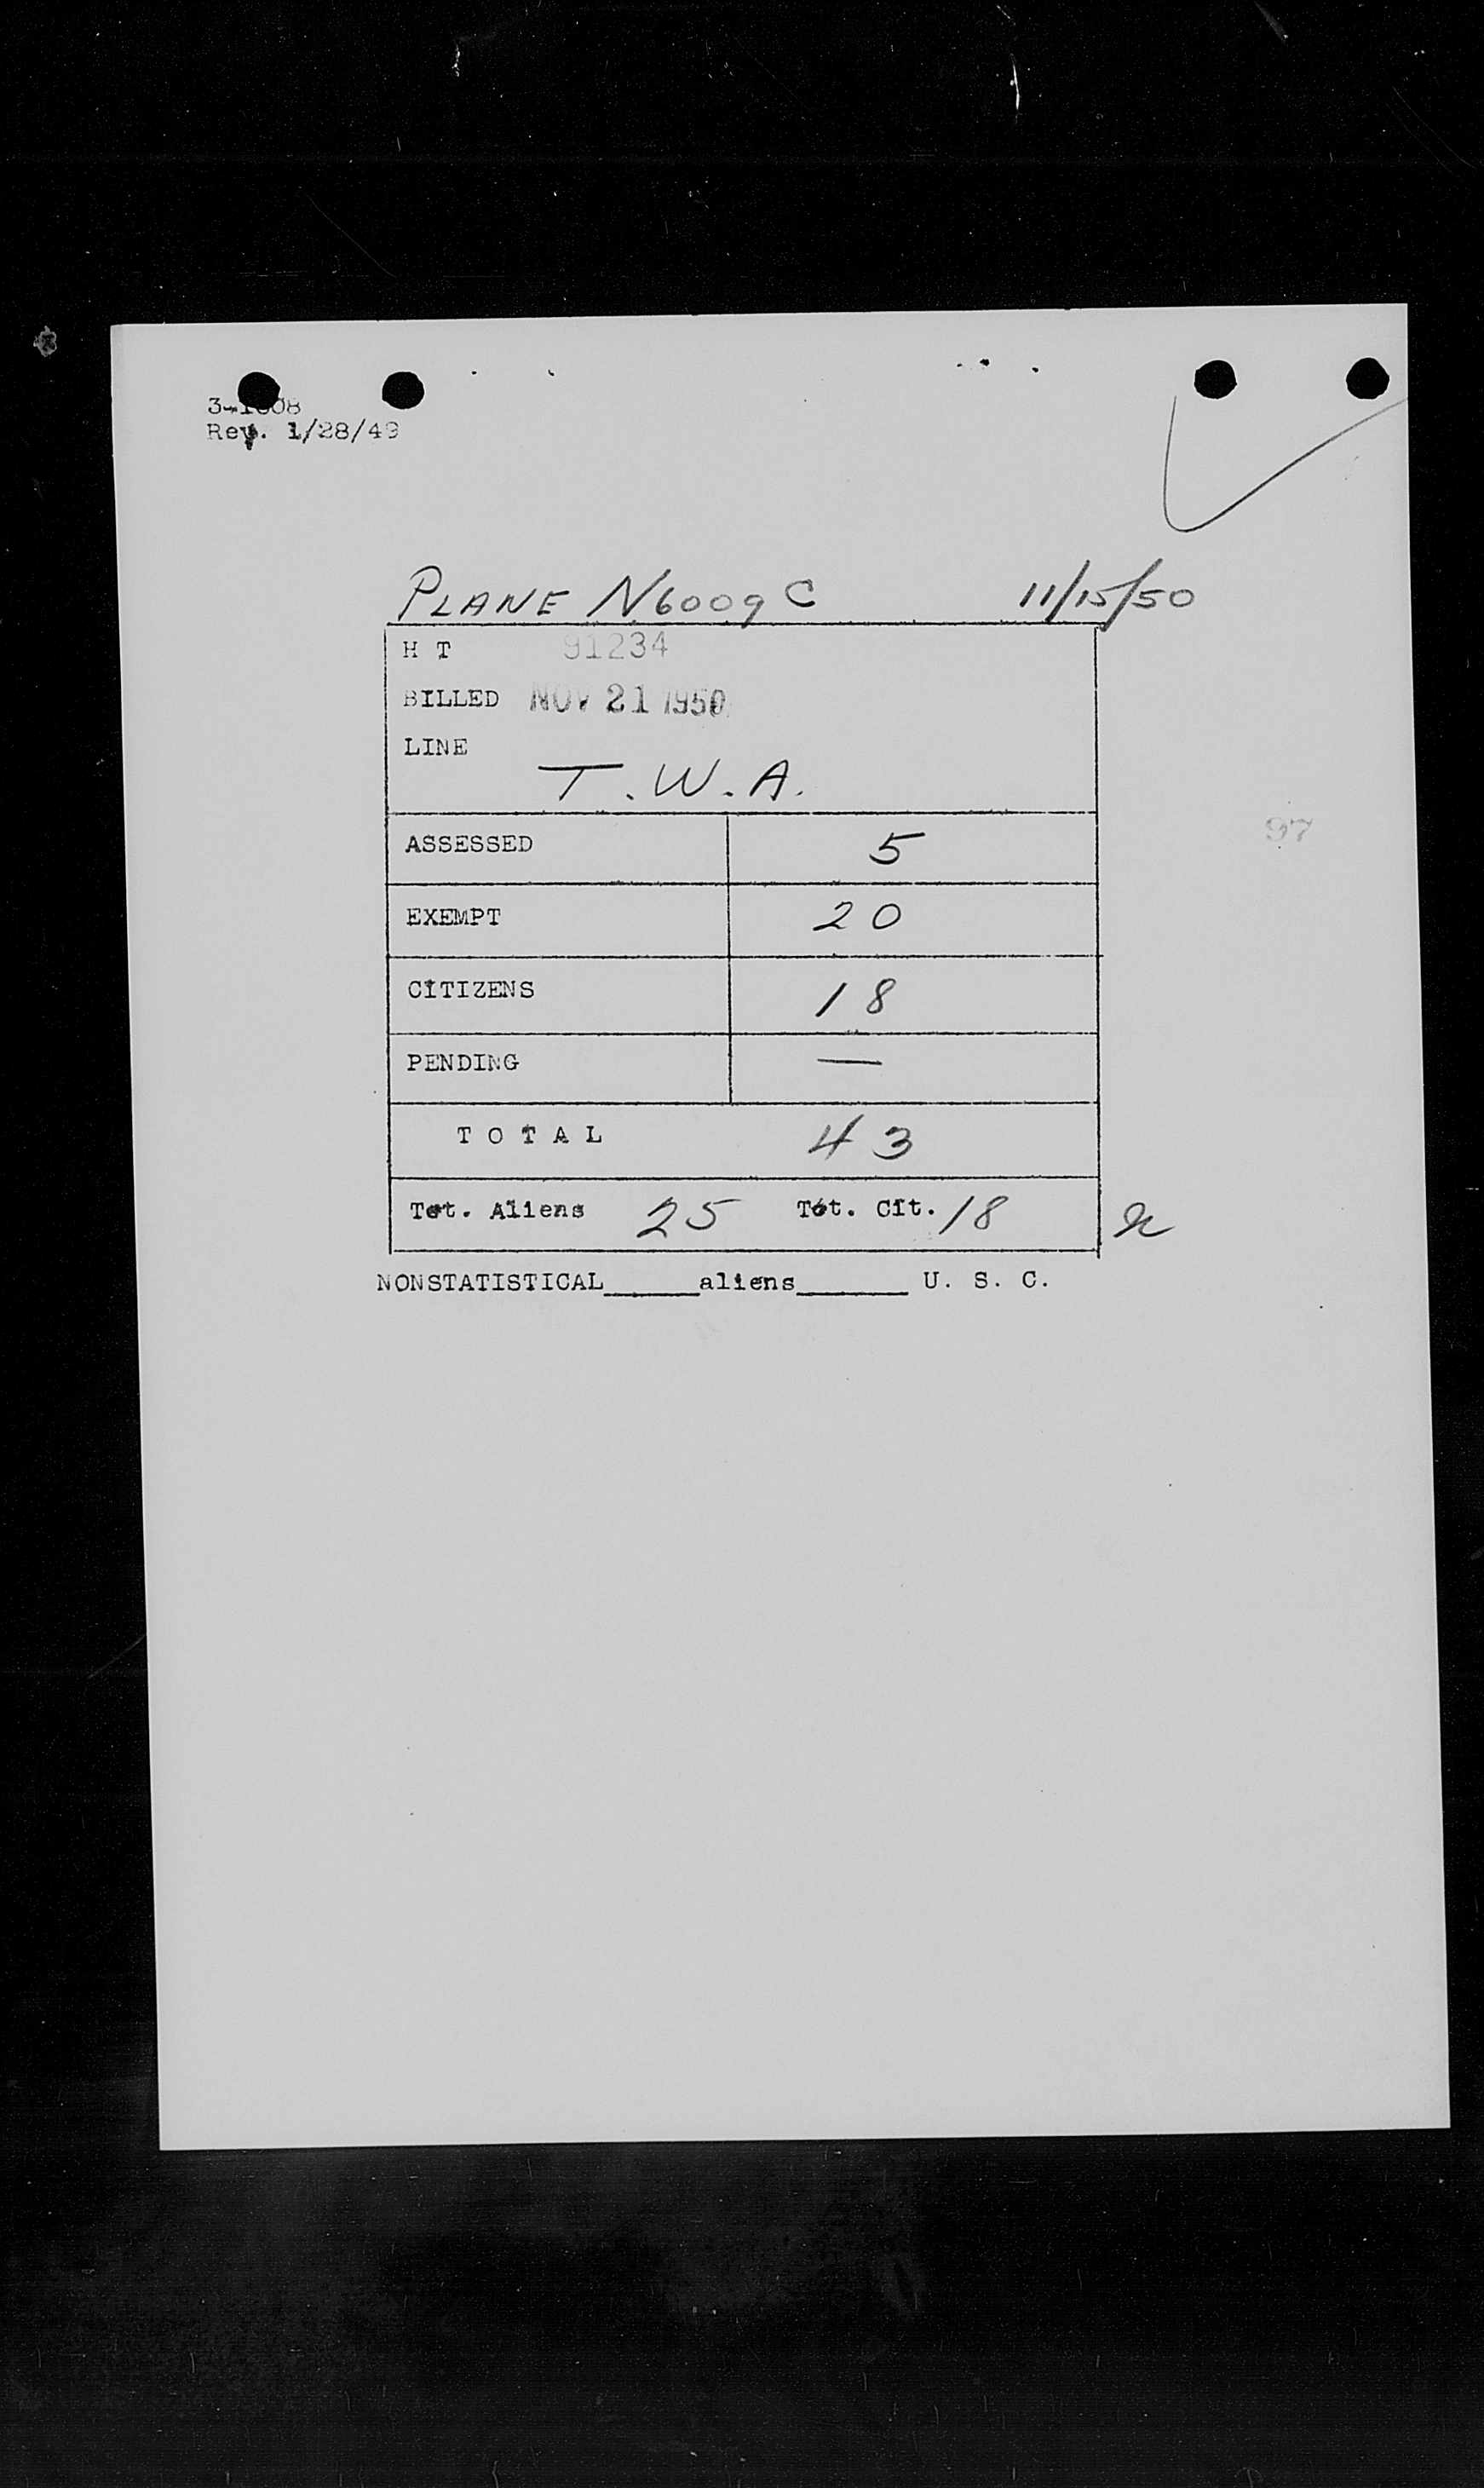 3-1608
Rev. 1/28/49
PLANE N6009C 11/15/50
H T 91234
BILLED NOV 21 1950
LINE
T.W.A.
97
ASSESSED 5
EXEMPT 20
CITIZENS 18
PENDING —
TOTAL 43
Tot. Aliens 25 Tot. Cit. 18
NONSTATISTICAL______aliens_______ U. S. C.